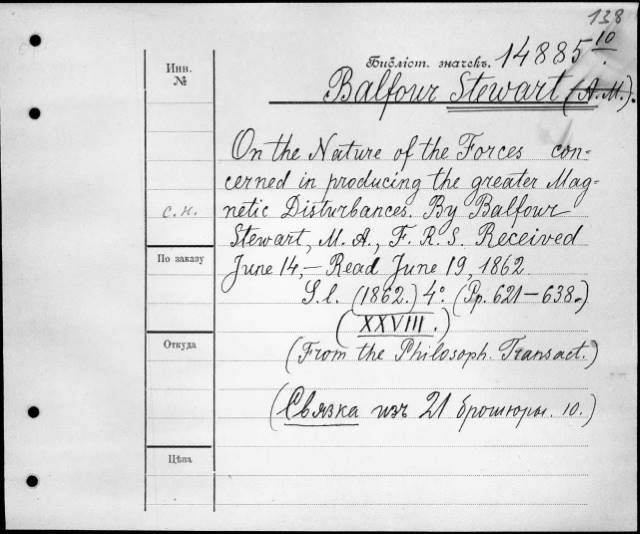 138
Библіот. значекъ. 14885 10
Инв.
№
Balfour Stewart (A. M.).
On the Nature of the Forces con-
cerned in producing the greater Mag-
с.н. netic Disturbances. By Balfour
Stewart, M. A., F. R. S. Received
По заказу June 14,— Read June 19, 1862
S. l. (1862.) 4°. (Pp. 621—638.)
(XXVIII.)
Откуда (From the Philosoph. Transact.)
(Связка изъ 21 брошюры. 10.)
Цѣна